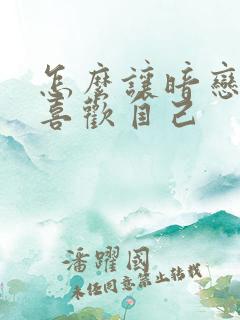 怎麼讓暗戀
喜歡自己
潘躍國
未任同意禁止轉載